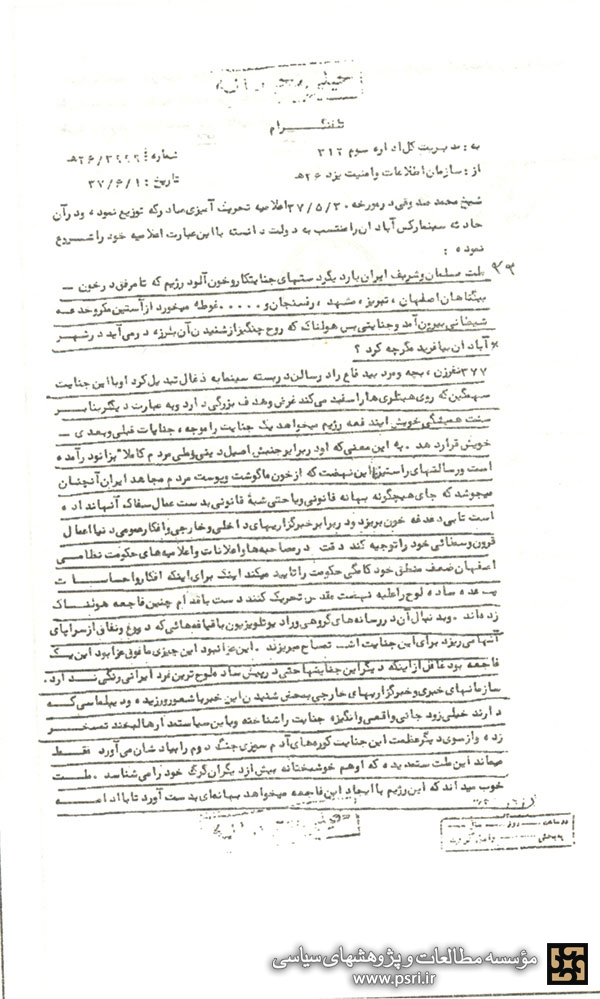 خیلی محرمانه
تلفنگرام
به: مدیریت کل اداره سوم ۳۱۲
شماره:
از: سازمان اطلاعات وامنیت یزد ۲۶ ه‍
تاریخ: ۳۷/۶/۱
شیخ محمد صدوقی در مورخه ۳۷/۵/۳۰ اعلامیه تحریک آمیزی صادر که توزیع نموده ودر آن
حادثه سینما رکس آبادان را منتسب به دولت دانسته با این عبارت اعلامیه خود را شروع
نموده:
ملت مسلمان وشریف ایران بار دیگر دستهای جنایتکار وخون آلود رژیم که تا مرفق در خون
بیگناهان اصفهان، تبریز، مشهد، رفسنجان و ..... غوطه میخورد از آستین مکر وخدعه
شیطانی بیرون آمد وجنایتی بس هولناک که روح چنگیز از شنیدن آن بلرزه در می‌آید در شهر
آبادان بیافرید مگر چه کرد؟
۳۷۷ نفر زن، بچه ومرد بیدفاع را در سالن در بسته سینما به ذغال تبدیل کرد او با این جنایت
سهمگین که روی هیتلری ها را سفید می کند غرض وهدف بزرگی دارد وبه عبارت دیگر بنا بر
سنت همیشگی خویش ایندفعه رژیم میخواهد یک جنایت را موجه، جنایات قبلی وبعدی
خویش قرار دهد. به این معنی که او در برابر جنبش اصیل دینی وملی مردم کاملا" بزانو در آمده
است ورسالتهای راستین این نهضت که از خون ما گوشت وپوست مردم مجاهد ایران آنچنان
میجوشد که جای هیچگونه بهانه قانونی ویا حتی شبه قانونی بدست عمال سفاک آنها نداده
است تا بی دغدغه خون بریزد ودر برابر خبرگزاریهای داخلی وخارجی وافکار عمومی دنیا اعمال
قرون وسطائی خود را توجیه کند دقت در مصاحبه ها واعلانات واعلامیه های حکومت نظامی
اصفهان ضعف منطق خودکامگی حکومت را تایید میکند اینک برای اینکه افکار واحساسات
عده ساده لوح را علیه نهضت مقدس تحریک کنند دست باقدام چنین فاجعه هولناک
زده‌اند. وبدنبال آن در رسانه های گروهی ورادیو تلویزیون با قیافه هائی که دروغ ونفاق از سراپای
آنها می ریزد برای این جنایت اشک تمساح میریزند. این عزا نبود این چیزی مافوق عزا بود این یک
فاجعه بود غافل از اینکه دیگر این جنایتها حتی در پیش ساده لوح ترین فرد ایرانی رنگی ندارد.
سازمانهای خبری وخبرگزاریهای خارجی بمحض شنیدن این خبر با شعور ورزیده ودیپلماسی که
دارند خیلی زود جانی واقعی وانگیزه جنایت را شناخته وباین سیاستمدارها لبخند تمسخر
زده واز سوی دیگر عظمت این جنایت کوره های آدم سوزی جنگ دوم را بیادشان می‌آورد فقط
میماند این ملت ستمدیده که او هم خوشبختانه بیش از دیگران گرگ خود را می شناسد. ملت
خوب میداند که این رژیم با ایجاد این فاجعه میخواهد بهانه‌ای بدست آورد تا با ادامه
خیلی محرمانه
در ساعت روز
به بخش واصل گردید
مؤسسه مطالعات و پژوهشهای سیاسی
www.psri.ir